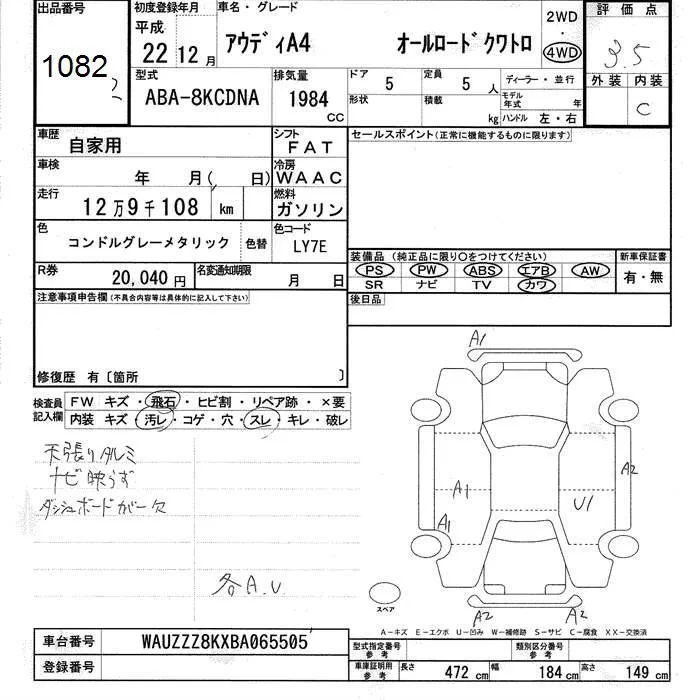 出品番号 初度登録年月 車名・グレード 評価点
1082 平成 22 12月 アウディA4 オールロードクワトロ 2WD・4WD 3.5
型式 ABA-8KCDNA 排気量 1984 CC
ドア 5 定員 5 人 ディーラー・並行 外装 内装
形状 積載 kg モデル年式 年 ハンドル 左・右 C
車歴 自家用 シフト FAT セールスポイント(正常に機能するものに限ります)
車検 年 月( 日) 冷房 WAAC
走行 12万9千108 km 燃料 ガソリン
色 コンドルグレーメタリック 色替 色コード LY7E
装備品 (純正品に限り○をつけてください) 新車保証書
R券 20,040円 名変通知期限 月 日
PS PW ABS エアB AW 有・無
SR ナビ TV カワ
注意事項申告欄(不具合内容等は具体的に記入して下さい) 後日品
修復歴 有〔箇所 〕
検査員記入欄 FW キズ・飛石・ヒビ割・リペア跡・×要
内装 キズ・汚レ・コゲ・穴・スレ・キレ・破レ
天張りタルミ
ナビ映らず
ダッシュボードカバー欠
各A.U.
A1
A1 U1 A2
A1
スペア
A2 A2
A−キズ E−エクボ U−凹み W−補修跡 S−サビ C−腐食 XX−交換済
車台番号 WAUZZZ8KXBA065505
登録番号
型式指定番号 参考 類別区分番号 参考
車庫証明用 参考 長さ 472 cm 幅 184 cm 高さ 149 cm